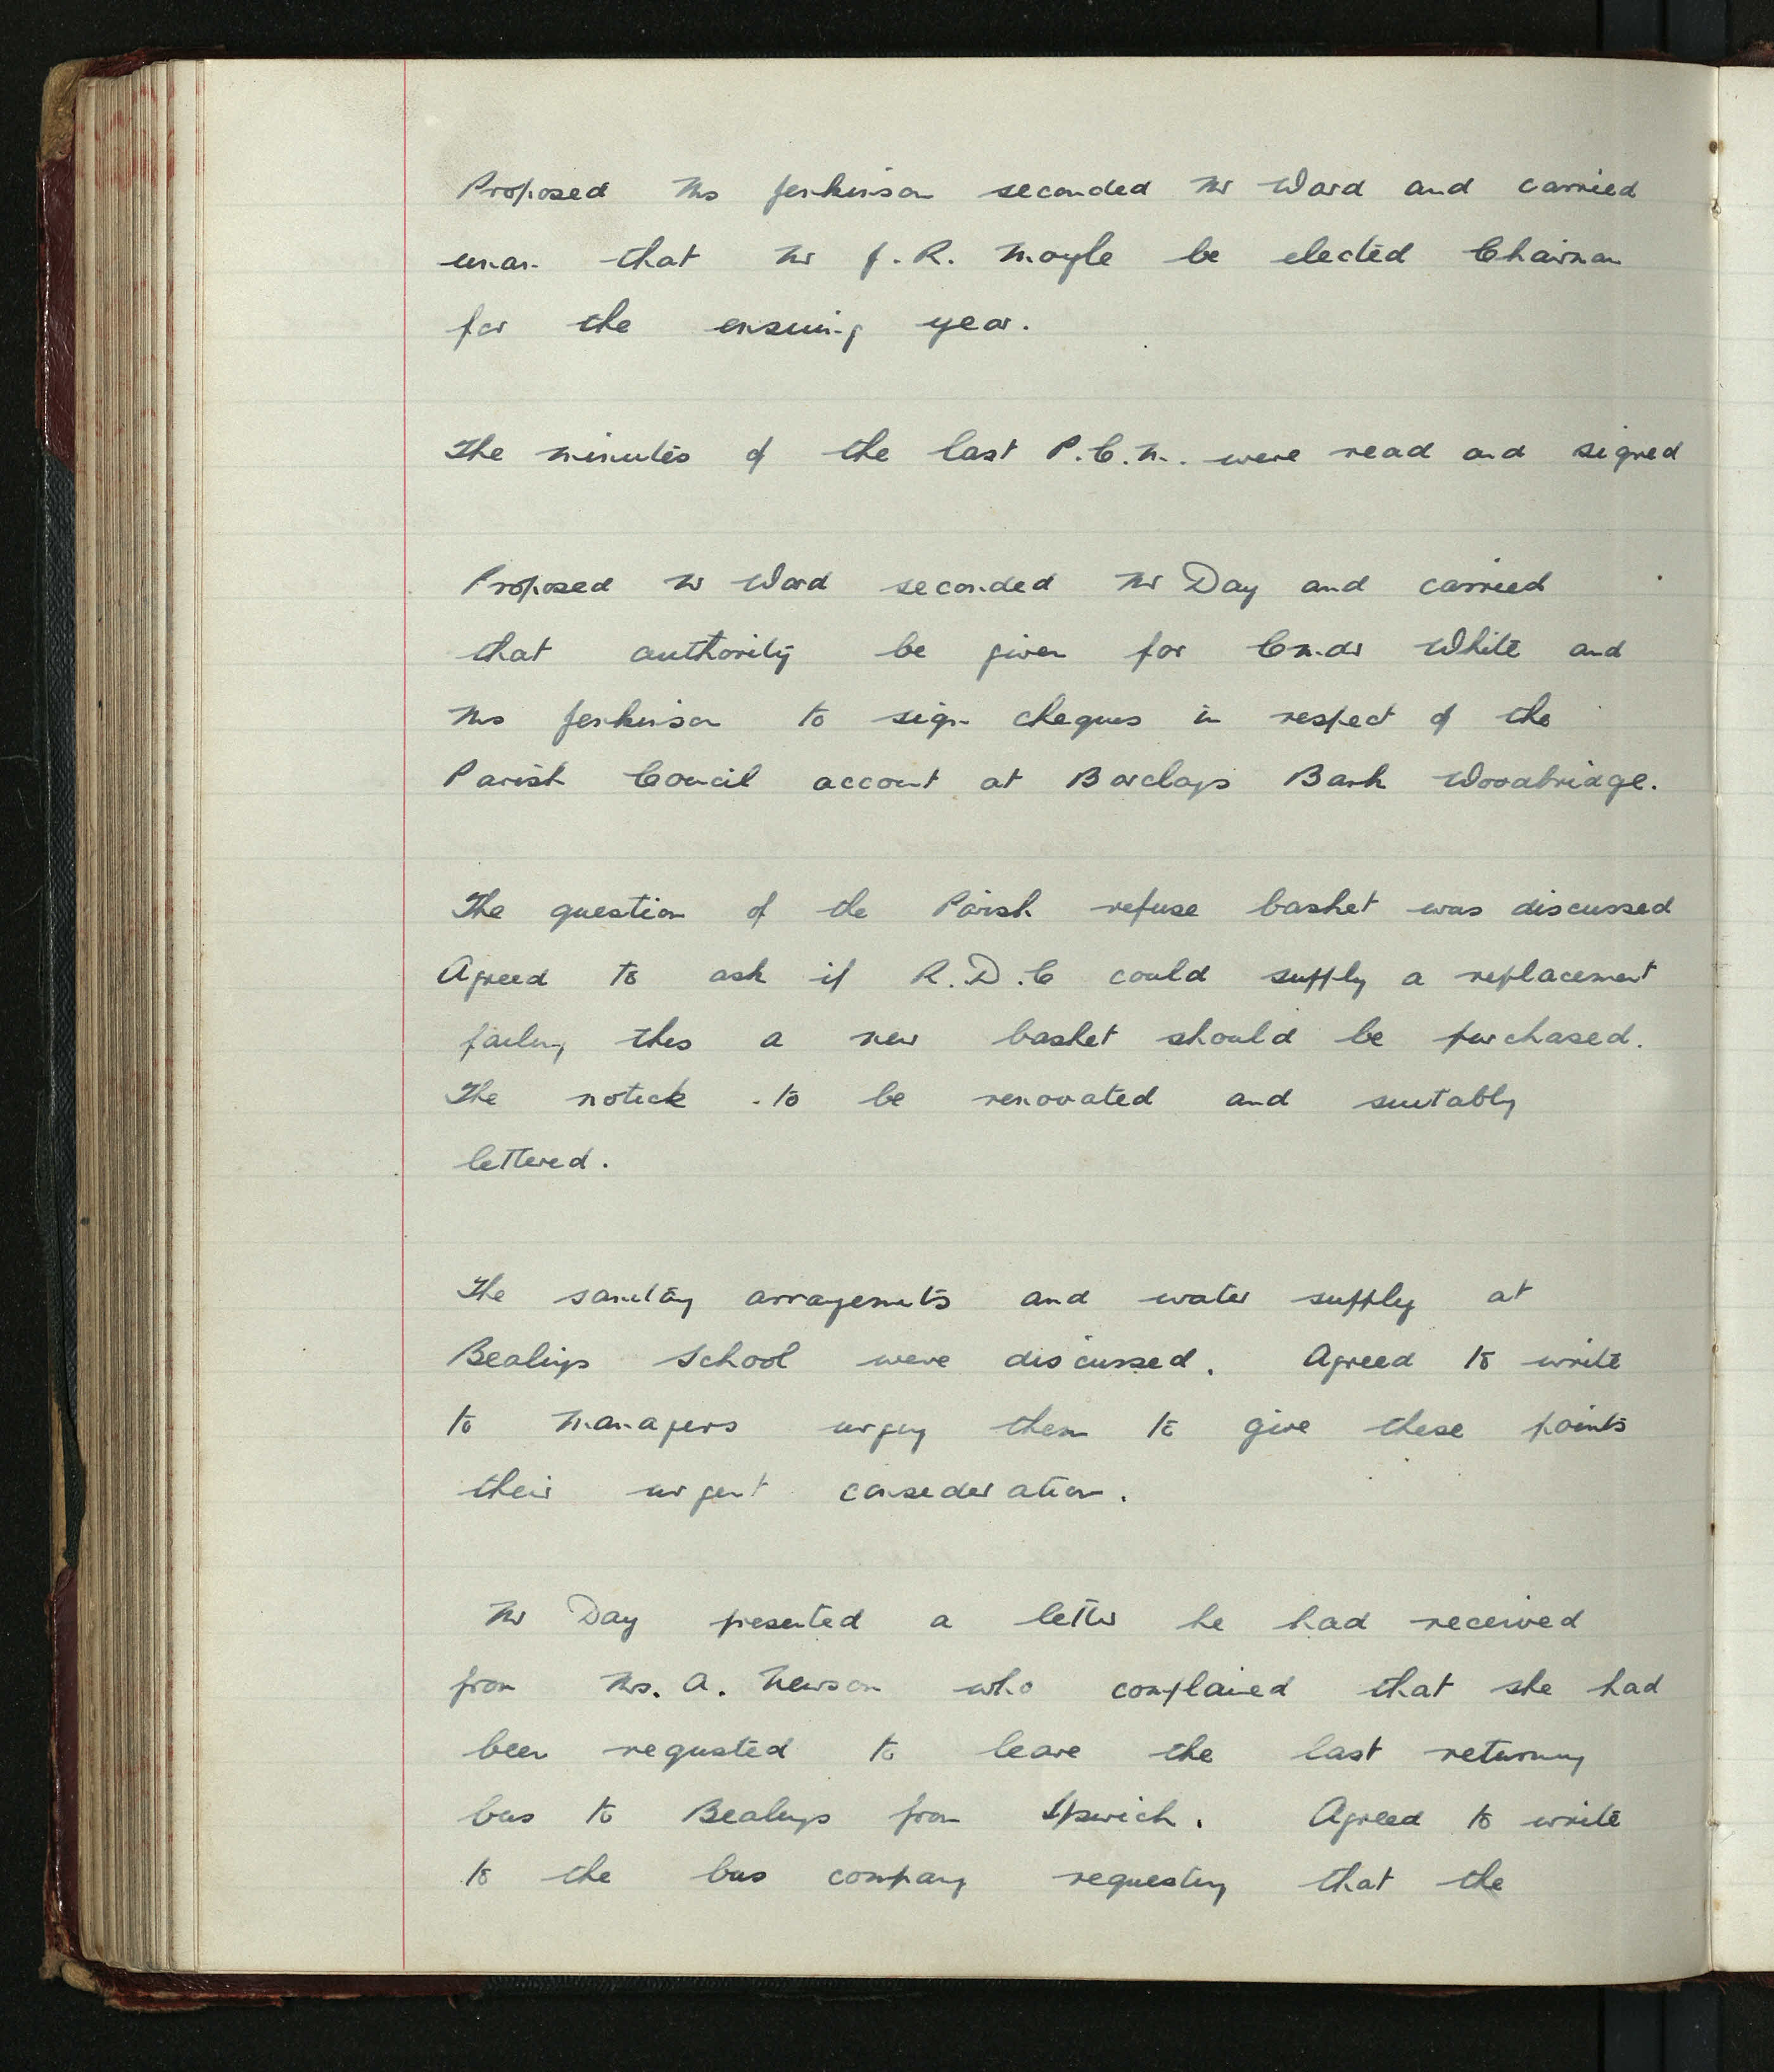 Proposed Mrs Jenkinson seconded Mr Ward and carried
unan. that Mr J. R. Moyle be elected Chairman
for the ensuing year.
The minutes of the last P.C.M. were read and signed
Proposed Mr Ward seconded Mr Day and carried
that authority be given for Cmdr White and
Mrs Jenkinson to sign cheques in respect of the
Parish Council account at Barclays Bank Woodbridge.
The question of the Parish refuse basket was discussed
Agreed to ask if R.D.C could supply a replacement
failing this a new basket should be purchased.
The to be renovated and suitably
lettered.
The sanitary arrangements and water supply at
Bealings School were discussed. Agreed to write
to Managers urging them to give these points
their urgent consideration.
Mr Day presented a letter he had received
from Mrs. A. Newson who complained that she had
been requested to leave the last returning
bus to Bealings from Ipswich. Agreed to write
to the bus company requesting that the